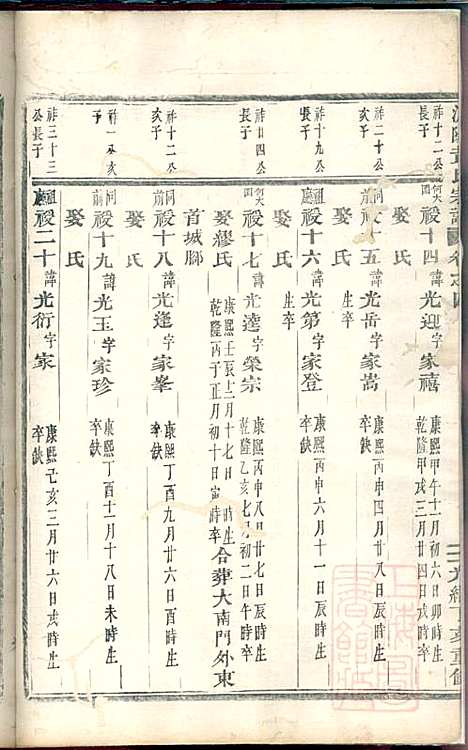 氏宗譜 卷之四 光緒丁亥重修
祚十二公長子
祾十四 諱光迎 字家禧 康熙甲午十一月初六日卯時生 乾隆甲戌三月廿四日戌時卒
娶氏
祚二十公亥子
祾十五 諱光岳 字家嵩 康熙丙申四月廿八日辰時生 卒缺
娶氏 生卒
祚十九公亥子
祾十六 諱光第 字家登 康熙丙申六月十一日辰時生 卒缺
娶氏 生卒
祚廿四公長子
祾十七 諱光達 字榮宗 康熙丙申八月廿七日辰時生 乾隆乙亥七月初五日辰時卒
娶繆氏 康熙壬辰十二月十七日時生 乾隆丙子正月初十日寅時卒 合葬大南門外東
首城腳
祚十二公亥子
同前 祾十八 諱光逢 字家峯 康熙丁酉九月廿六日酉時生 卒缺
娶氏
祚一公亥子
同前 祾十九 諱光玉 字家珍 康熙丁酉十一月十八日未時生 卒缺
娶氏
祚三十三公長子
祾二十 諱光衍 字家 康熙己亥三月廿六日戌時生 卒缺
上海圖書館藏